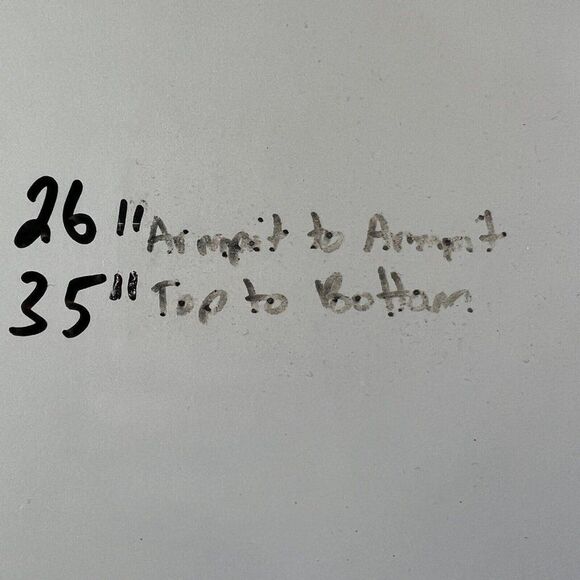 26" Armpit to Armpit
35" Top to Bottom